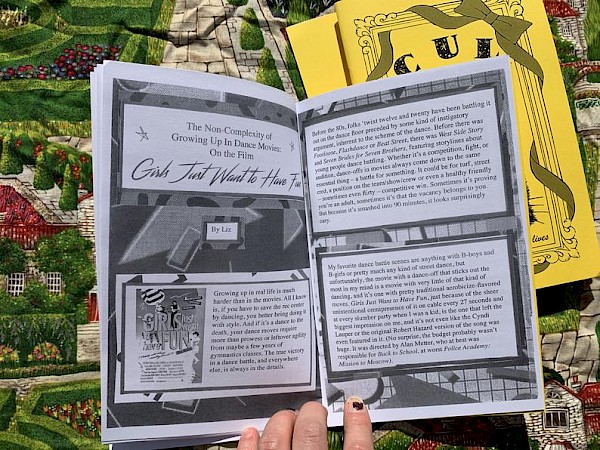 The Non-Complexity of
Growing Up In Dance Movies:
On the Film
Girls Just Want to Have Fun
By Liz
GIRLS
JUST
WANT TO
HAVE
FUN
Growing up in real life is much
harder than in the movies. All I know
is, if you have to save the rec center
by dancing, you better being doing it
with style. And if it's a dance to the
death, your dance moves require
more than prowess or leftover agility
from maybe a few years of
gymnastics classes. The true victory
in a dance battle, and everywhere
else, is always in the details.
Before the 80s, folks 'twixt twelve and twenty have been battling it
out on the dance floor preceded by some kind of instigatory
argument, inherent to the scheme of the dance. Before there was
Footloose, Flashdance or Beat Street, there was West Side Story
and Seven Brides for Seven Brothers, featuring storylines about
young people dance battling. Whether it's a competition, fight, or
audition, dance-offs in movies always come down to the same
essential thing – a battle for something. It could be for turf, street
cred, a position on the team/show/crew or even a healthy friendly
– sometimes even flirty – competitive win. Sometimes it's proving
you're an adult, sometimes it's that the vacancy belongs to you.
But because it's smashed into 90 minutes, it looks surprisingly
easy.
My favorite dance battle scenes are anything with B-boys and
B-girls or pretty much any kind of street dance, but
unfortunately, the movie with a dance-off that sticks out the
most in my mind is a movie with very little of that kind of
dancing, and it's one with pretty traditional aerobicize-flavored
dance moves. Girls Just Want to Have Fun, just because of the sheer
unintentional omnipresence of it on cable every 27 seconds and
at every slumber party when I was a kid, is the one that left the
biggest impression on me, and it's not even like the Cyndi
Lauper or the original Robert Hazard version of the song was
even featured in it. (No surprise, the budget probably wasn't
huge. It was directed by Alan Metter, who at best was
responsible for Back to School, at worst Police Academy:
Mission to Moscow).
CUL
lives